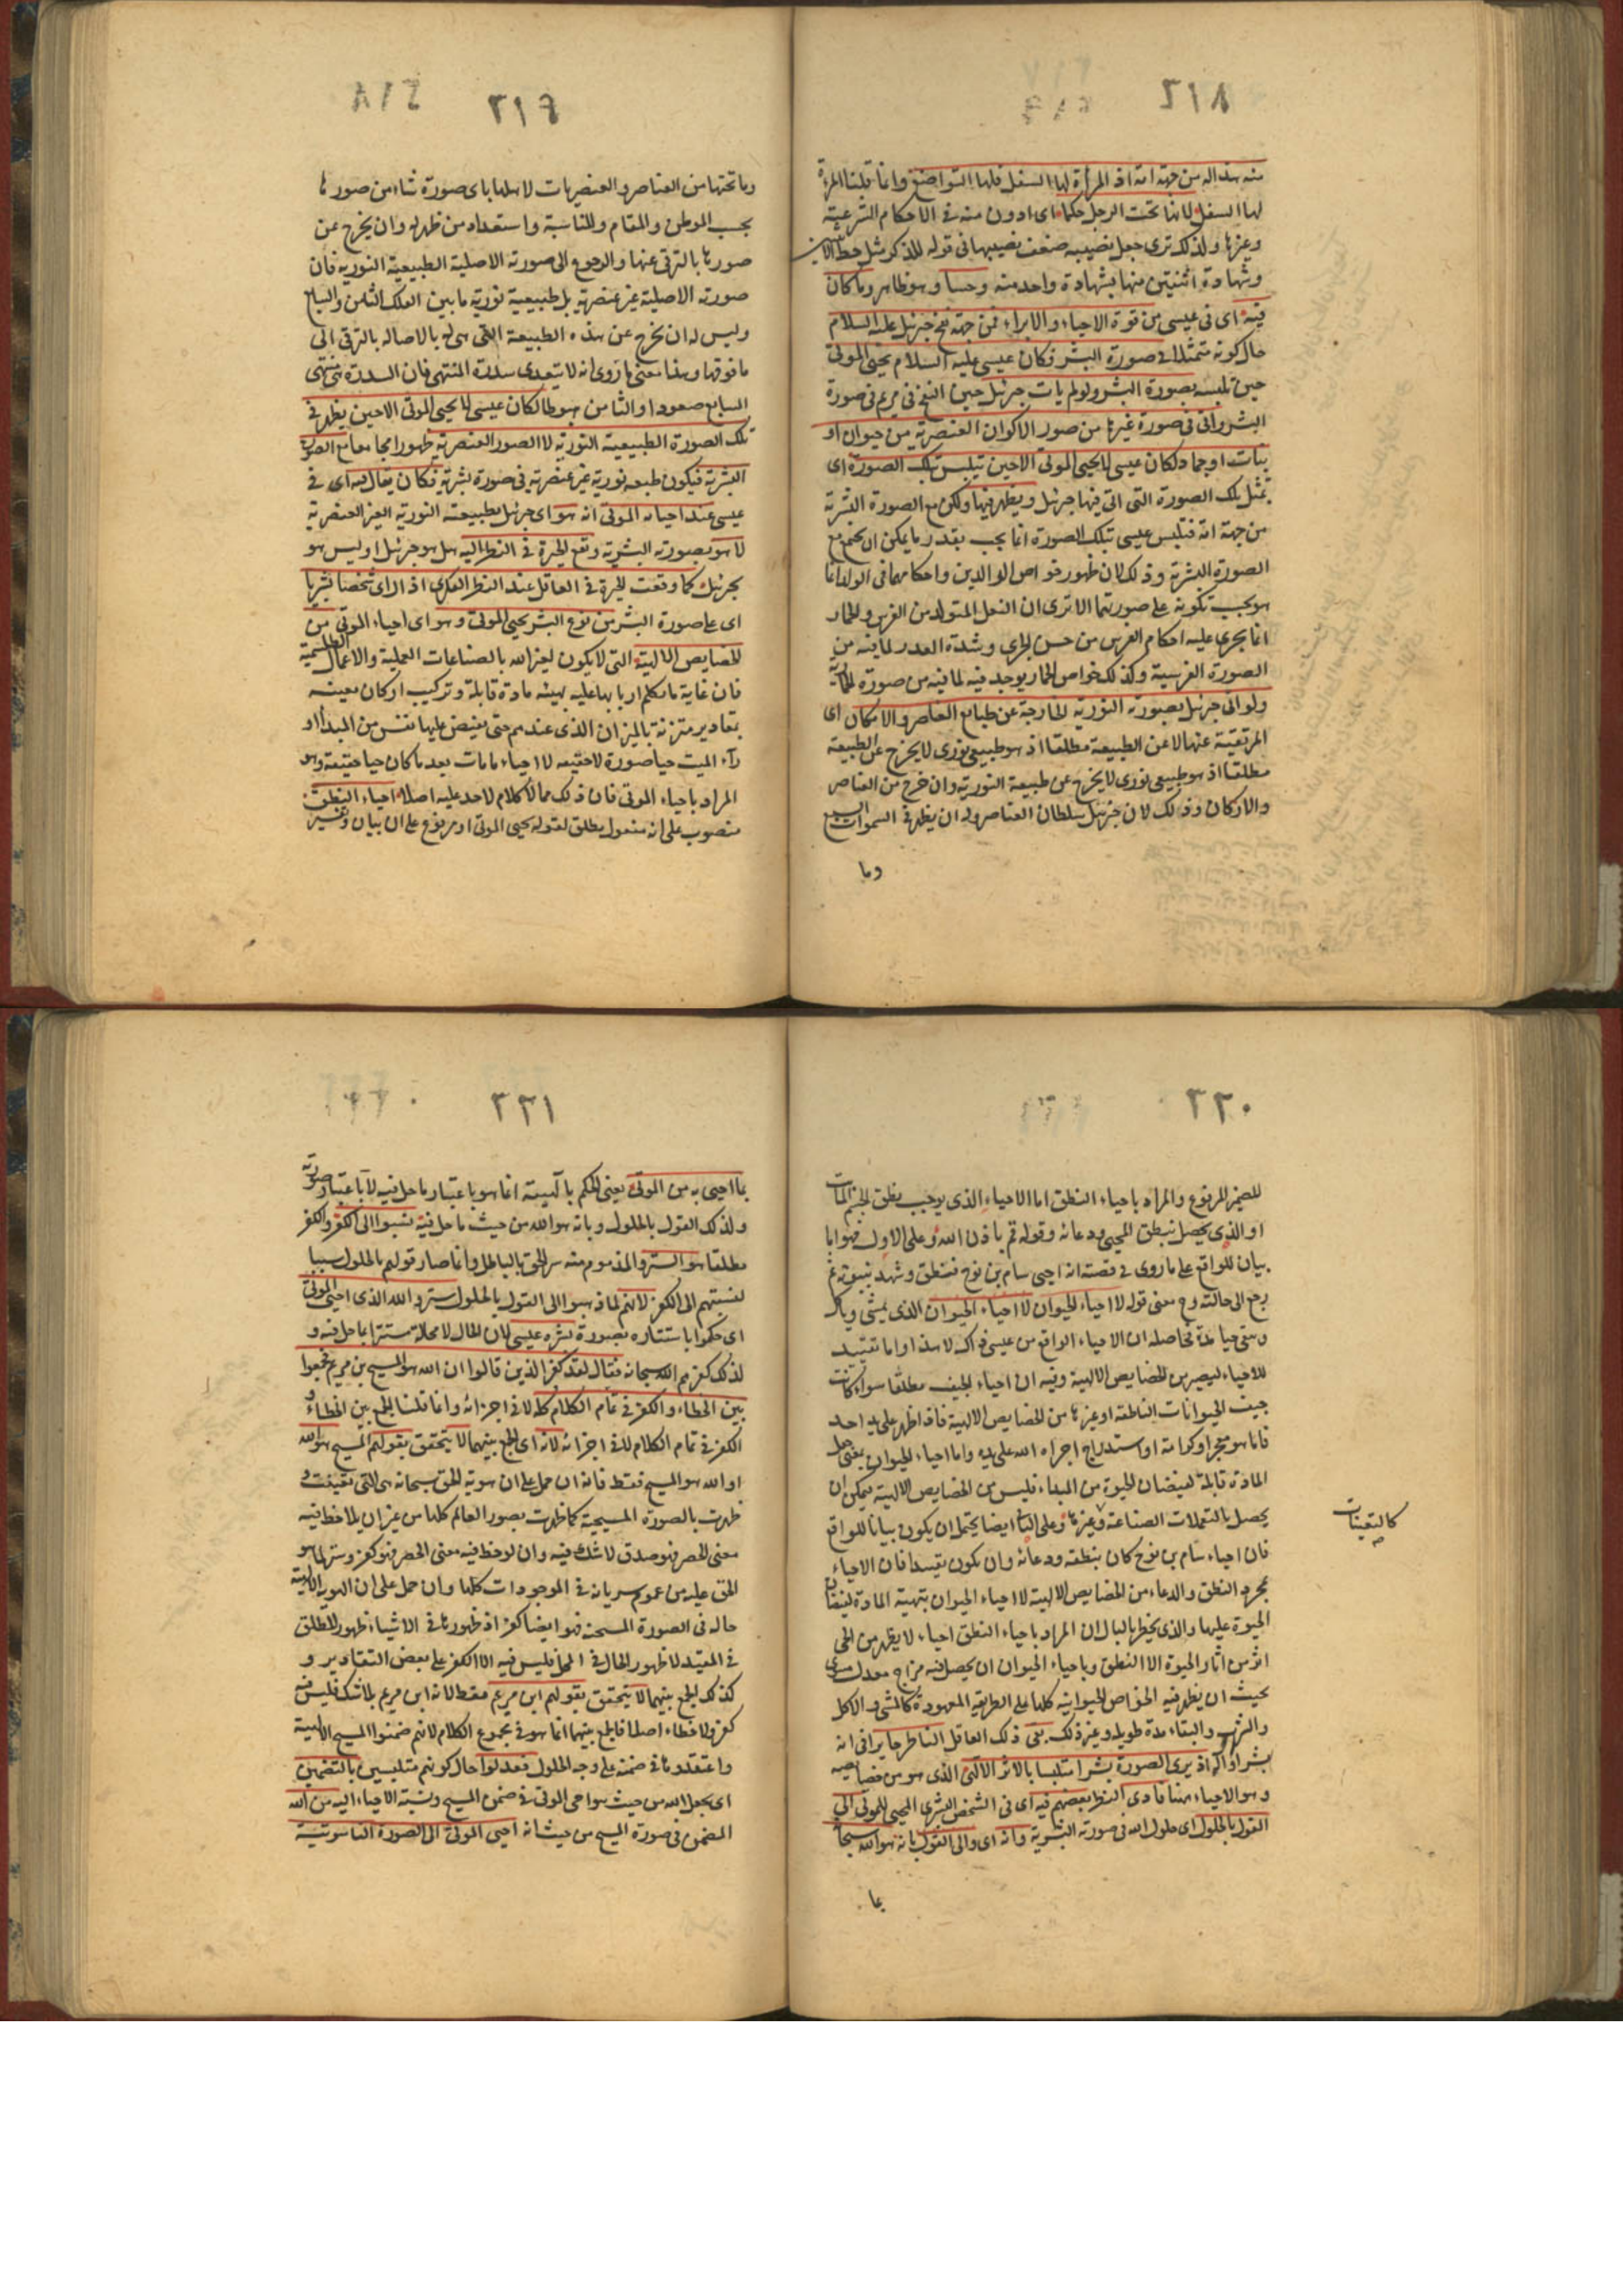 ٢١٨
منه هذا له من جهة امه اذ المرأة لها السفل فلها التواضع وانما قلنا المرأة
لها السفل لانها تحت الرجل حكما اى ادون منه فى الاحكام الشرعية
وغيرها ولذلك ترى جعل نصيبه ضعف نصيبها فى قوله للذكر مثل حظ الانثيين
وشهادة اثنتين منها بشهادة واحد منه وحسا وهو ظاهر وما كان
فيه اى فى عيسى من قوة الاحياء والابراء فمن جهة نفخ جبرئيل عليه السلام
حال كونه متمثلا فى صورة البشر فكان عيسى عليه السلام يحيى الموتى
حين تلبسه بصورة البشر ولو لم يات جبرئيل حين النفخ فى مريم فى صورة
البشر واتى فى صورة غيرها من صور الاكوان العنصرية من حيوان او
نبات او جماد لكان عيسى لا يحيى الموتى الا حين تلبس بتلك الصورة اى
تمثل بتلك الصورة التى اتى فيها جبرئيل ويظهر فيها ولكن مع الصورة البشرية
من جهة امه فتلبس عيسى بتلك الصورة انما يجب بقدر ما يمكن ان يجتمع مع
الصورة البشرية وذلك لان ظهور خواص الوالدين واحكامهما فى الولد انما
هو بحسب تكونه على صورتهما الا ترى ان البغل المتولد من الفرس والحمار
انما يجرى عليه احكام الفرس من حسن الجرى وشدة العدو لما فيه من
الصورة الفرسية وكذلك خواص الحمار يوجد فيه لما فيه من صورة الحمارية
ولو اتى جبرئيل بصورته النورية الخارجة عن طبايع العناصر والاركان اى
المرتقية عنها لا عن الطبيعة مطلقا اذ هو طبيعى نورى لا يخرج عن الطبيعة
مطلقا اذ هو طبيعى نورى لا يخرج عن طبيعة النورية وان خرج من العناصر
والاركان وذلك لان جبرئيل سلطان العناصر وله ان يظهر فى السموات السبع
وما
٢١٩
وما تحتها من العناصر والعنصريات لاهلها باى صورة شاء من صورها
بحسب الموطن والمقام والمناسبة واستعداد من ظهر له وان يخرج عن
صورها بالترقى عنها والرجوع الى صورته الاصلية الطبيعية النورية فان
صورته الاصلية غير عنصرية بل طبيعية نورية ما بين الفلك الثامن والسابع
وليس له ان يخرج عن هذه الطبيعة التى هى له بالاصالة بالترقى الى
ما فوقها وهذا معنى ما روى انه لا يتعدى سدرة المنتهى فان السدرة هى منتهى
السابع صعودا والثامن هبوطا لكان عيسى لا يحيى الموتى الا حين يظهر فى
تلك الصورة الطبيعية النورية لا الصور العنصرية ظهورا مجامعا مع الصورة
البشرية فيكون طبيعة نورية غير عنصرية فى صورة بشرية فكان يقال فيه اى فى
عيسى عند احيائه الموتى انه هو اى جبرئيل بطبيعته النورية الغير العنصرية
لا هو بصورته البشرية وتقع الحيرة فى النظر اليه هل هو جبرئيل او ليس هو
بجبرئيل كما وقعت الحيرة فى العاقل عند النظر الفكرى اذا راى شخصا بشريا
اى على صورة البشر من نوع البشر يحيى الموتى وهو اى احياء الموتى من
الخصايص الالهية التى لا يكون لغير الله بالصناعات العملية والاعمال الطلسمية
فان غاية ما تكلم اربابها عليه تهيئة مادة قابلة وتركيب اركان معينة
بمقادير متزنة بالميزان الذى عندهم حتى يفيض عليها نفس من المبدأ او
رآء الميت حيا صورة لا حقيقة لا احياء ما مات بعد ما كان حيا حقيقة وهو
المراد باحياء الموتى فان ذلك مما لا كلام لاحد عليه اصلا احياء النطق
منصوب على انه مفعول مطلق لقوله يحيى الموتى او مرفوع على ان بيان وتفسير
٢٢٠
للضمير المرفوع والمراد باحياء النطق اما الاحياء الذى يوجب نطق الجسم المات
او الذى يحصل بنطق المحيى ودعائه وقوله قم باذن الله وعلى الاول فهو اما
بيان للواقع على ما روى فى قصته انه احيى سام بن نوح فنطق وشهد بنبوته ثم
رجع الى حالته وح معنى قوله لا احياء الحيوان لا احياء الحيوان الذى يمشى وياكل
وبقى حيا مدة فحاصله ان الاحياء الواقع من عيسى ذاك لا هذا واما تقييد
للاحياء ليصير من الخصايص الالهية وفيه ان احياء الجيف مطلقا سواء كانت
جيف الحيوانات الناطقة او غيرها من الخصايص الالهية فاذا ظهر على يد احد
فاما هو معجز او كرامة او استدراج اجراه الله على يده واما احياء الحيوان بمعنى جعل
المادة قابلة لفيضان الحيوة من المبداء فليس من الخصايص الالهية يمكن ان
يحصل بالتعملات الصناعية وغيرها وعلى الثانى ايضا يحتمل ان يكون بيانا للواقع
فان احياء سام بن نوح كان بنطقه ودعائه وان يكون تقييدا فان الاحياء
بمجرد النطق والدعاء من الخصايص الالهية لا احياء الحيوان بتهيئة المادة لفيضان
الحيوة عليها والذى يخطر بالبال ان المراد باحياء النطق احياء لا يظهر من الحى
اثر من اثار الحيوة الا النطق وباحياء الحيوان ان يحصل فيه مزاج معدل سوى
بحيث ان يظهر فيه الخواص الحيوانية كلها على الطريقة المعهودة كالمشى والاكل
والشرب والبقاء مدة طويلة وغير ذلك بقى ذلك العاقل الناظر حايرا فى انه
بشر او اله اذ يرى الصورة بشرا متلبسا بالاثر الالهى الذى هو من خصايصه
وهو الاحياء هنا فادى النظر بعضهم فيه اى فى الشخص البشرى المحيى للموتى الى
القول بالحلول اى حلول الله فى صورته البشرية وانه اى والى القول بانه هو الله سبحانه
كالتعينات
صح
بما
٢٢١
بما احيى به من الموتى يعنى الحكم بالهيته انما هو باعتبار ما حل فيه لا باعتبار صورته
ولذلك القول بالحلول وبانه هو الله من حيث ما حل فيه نسبوا الى الكفر والكفر
مطلقا هو الستر والمذموم منه ستر الحق بالباطل وانما صار قولهم بالحلول سببا
لنسبتهم الى الكفر لانهم لما ذهبوا الى القول بالحلول ستروا الله الذى احيى الموتى
اى حكموا باستتاره بصورة بشرية عيسى لان الحال لا محالة مستتر بما حل فيه و
لذلك كفرهم الله سبحانه فقال لقد كفر الذين قالوا ان الله هو المسيح بن مريم فجمعوا
بين الخطاء والكفر فى تمام الكلام كله لا فى اجزائه وانما قلنا الجمع بين الخطاء و
الكفر فى تمام الكلام لا فى اجزائه لانه اى الجمع بينهما لا يتحقق بقولهم المسيح هو الله
او الله هو المسيح فقط فانه ان حمل على ان هوية الحق سبحانه هى التى تعينت و
ظهرت بالصورة المسيحية كما ظهرت بصور العالم كلها من غير ان يلاحظ فيه
معنى الحصر فهو صدق لا شك فيه وان لوحظ فيه معنى الحصر فهو كفر وستر لما هو
الحق عليه من عموم سريانه فى الموجودات كلها وان حمل على ان الهوية الالهية
حالة فى الصورة المسيحية فهو ايضا كفر اذ ظهورها فى الاشياء ظهور المطلق
فى المقيد لا ظهور الحال فى المحل فليس فيه الا الكفر على بعض التقادير و
كذلك الجمع بينهما لا يتحقق بقولهم ابن مريم فقط لانه ابن مريم بلا شك فليس فيه
كفر ولا خطاء اصلا فالجمع بينهما انما هو فى مجموع الكلام لانهم ضمنوا المسيح الالهية
واعتقدوها فى ضمنه على وجه الحلول فعدلوا حال كونهم متلبسين بالتضمين
اى بجعل الله من حيث هو احيى الموتى فى ضمن المسيح ونسبة الاحياء اليه من الله
المضمون فى صورة المسيح من حيث انه احيى الموتى الى الصورة الناسوتية